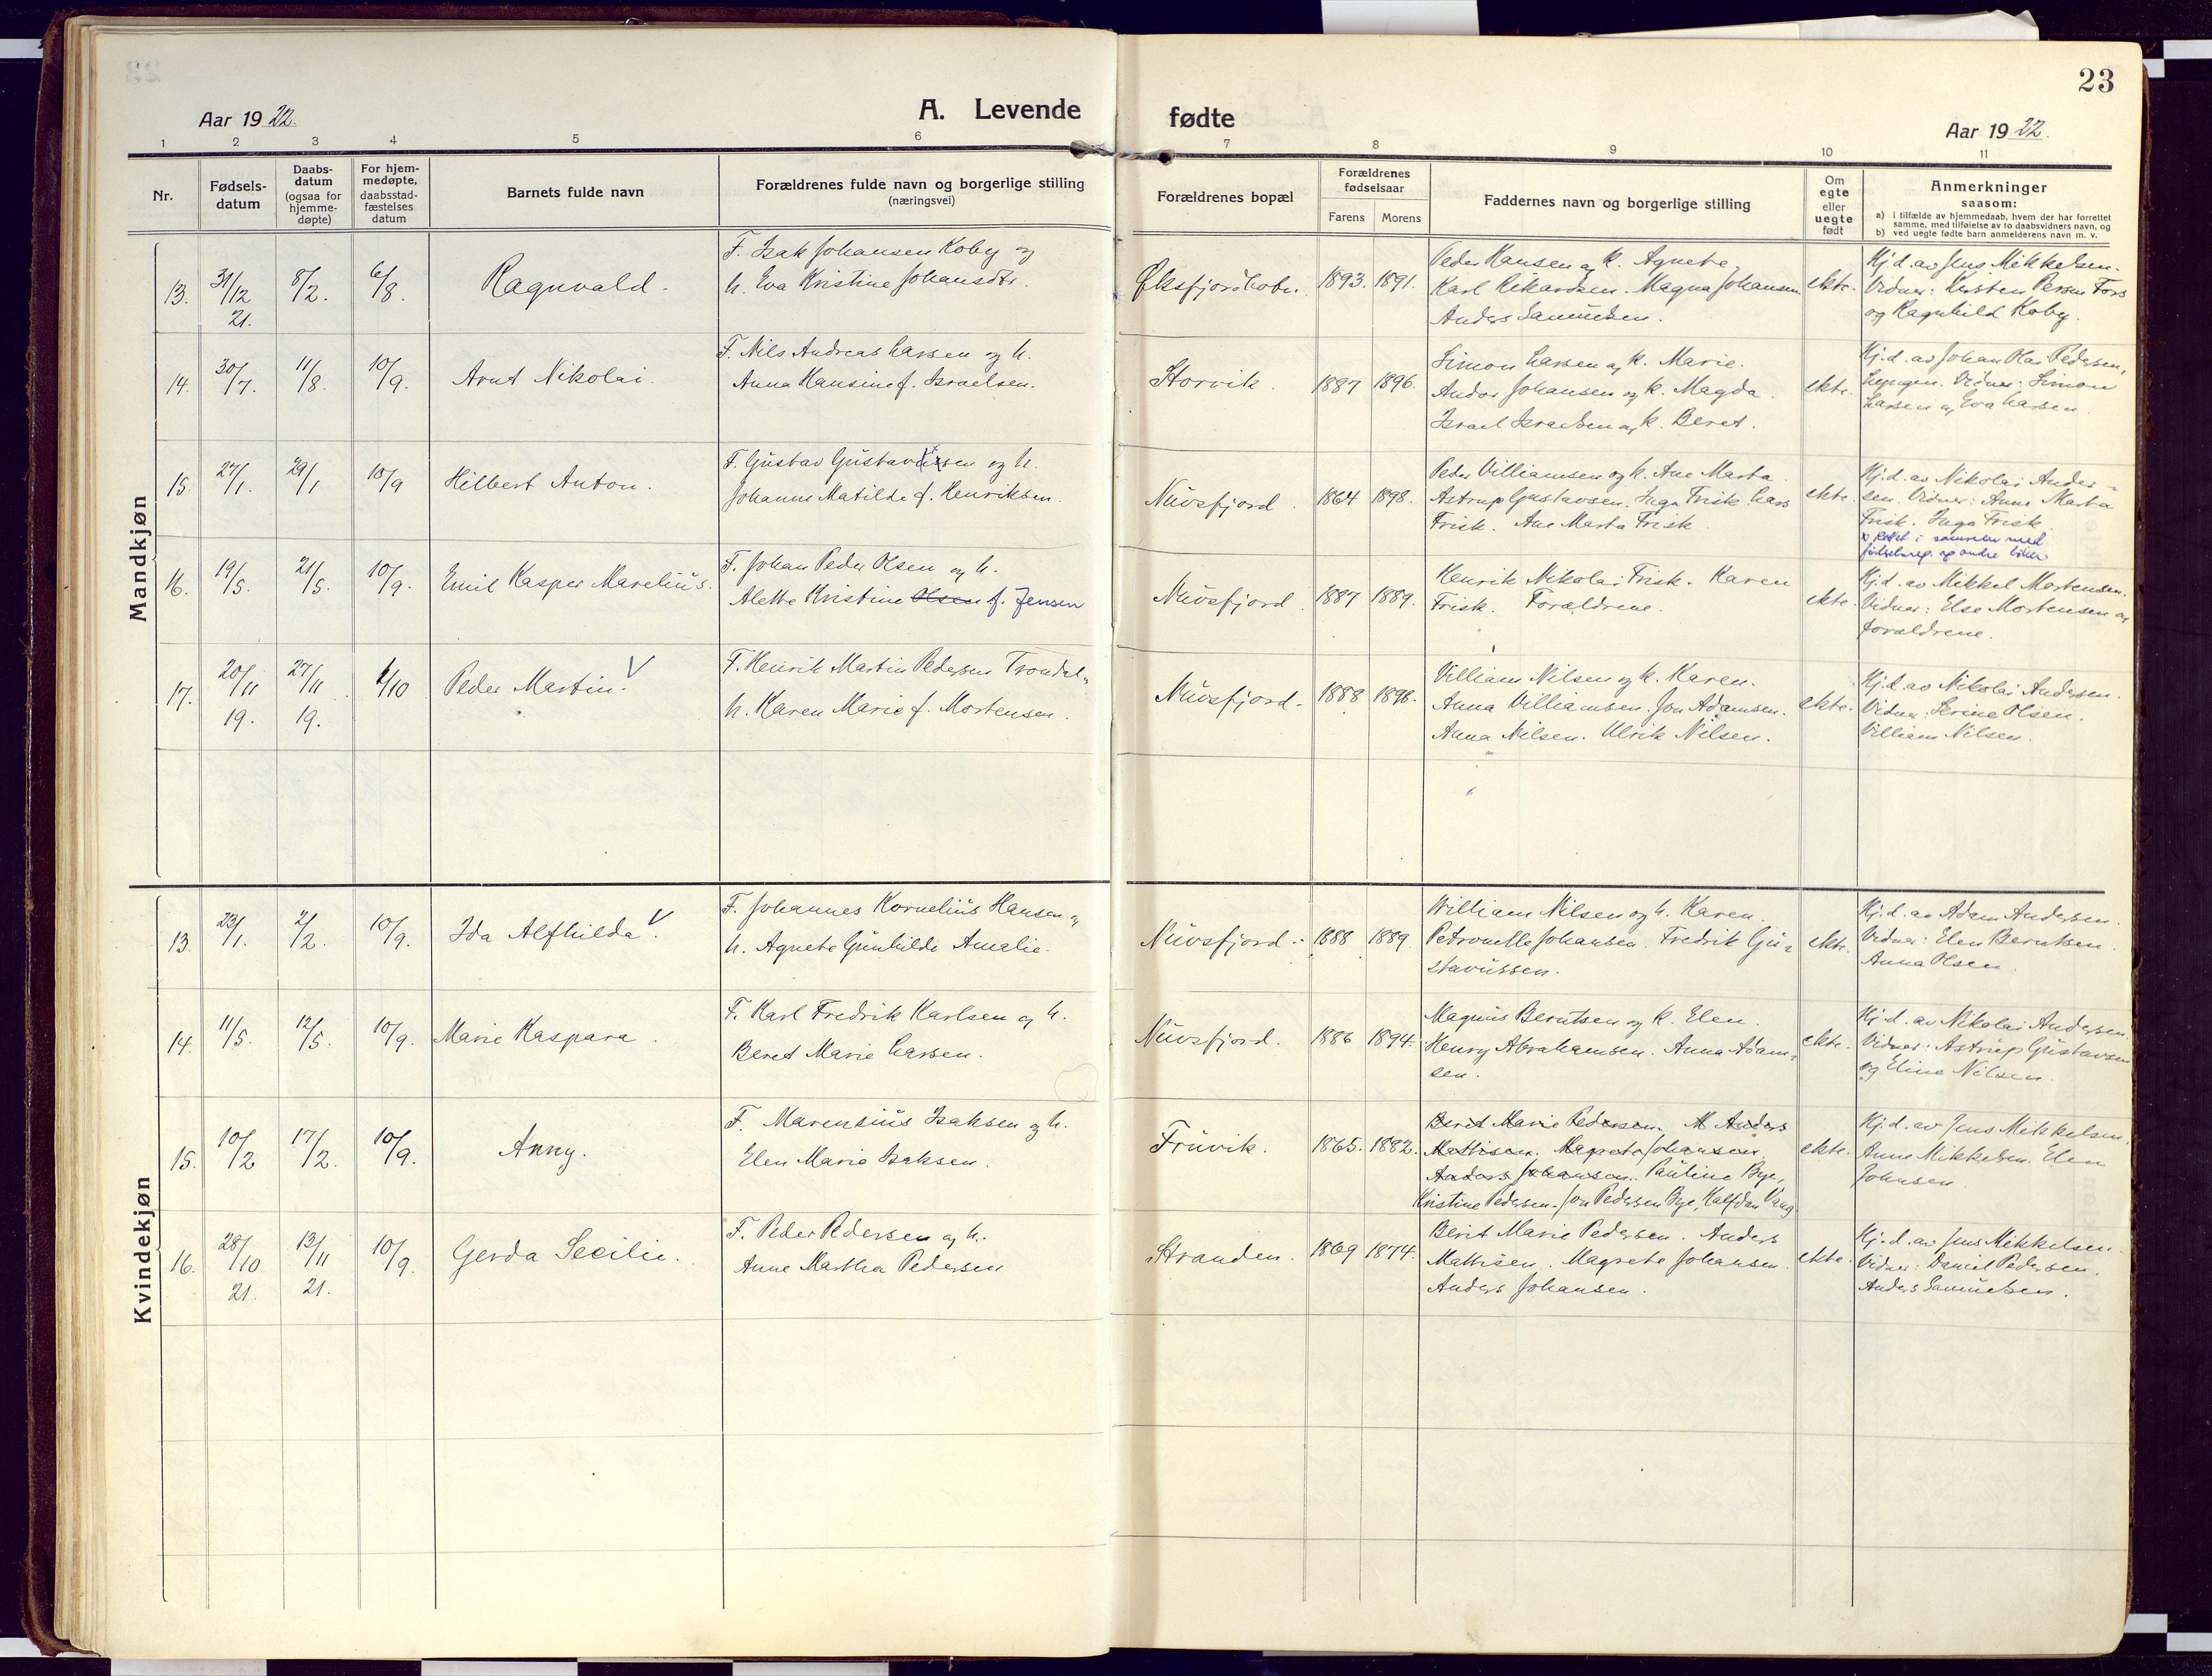 23
Aar 1922.
A. Levende
fødte
Aar 1922.
1 2 3 4 5 6 7 8 9 10 11
Nr.
Fødsels-
datum
Daabs-
datum
(ogsaa for
hjemme-
døpte)
For hjem-
medøpte,
daabsstad-
fæstelses
datum
Barnets fulde navn
Forældrenes fulde navn og borgerlige stilling
(næringsvei)
Forældrenes bopæl
Forældrenes
fødselsaar
Farens Morens
Faddernes navn og borgerlige stilling
Om
egte
eller
uegte
født
Anmerkninger
saasom:
a) i tilfælde av hjemmedaab, hvem der har forrettet
samme, med tilføielse av to daabsvidners navn, og
b) ved uegte fødte barn anmelderens navn m. v.
Mandkjøn
13. 31/12 21. 8/2. 6/8. Ragnvald.
F. Isak Johansen Koby og
h. Eva Kristine Johansdtr.
1893. 1891.
Peder Hansen og k. Agnete,
Karl Rikardsen. Magna Johansen
Anders Samuelsen.
ekte.
Hj.d. av Jens Mikkelsen.
Vidner: Kirsten Persen Fors
og Ragnhild Koby.
14. 30/7. 11/8. 10/9. Arnt Nikolai.
F. Nils Andreas Larsen og h.
Anna Hansine f. Israelsen.
Storvik. 1887 1896.
Simon Larsen og k. Marie.
Andor Johansen og k. Magda.
Israel Israelsen og k. Beret.
ekte.
Hj.d. av Johan Olai Pedersen,
Vidner: Simon
Larsen og Eva Larsen
15. 27/1. 29/1 10/9 Hilbert Anton.
F. Gustav Gustavsen og h.
Johanne Matilde f. Henriksen.
Nuvsfjord. 1864 1898.
Peder Villiamsen og h. Ane Marta.
Astrup Gustavsen. Inga Frisk. Lars
Frisk. Ane Marta Frisk.
ekte.
Hj.d. av Nikolai Ander-
sen. Vidner: Anne Marta
Frisk. Inga Frisk.
x rettet i samsvar med
fødselsreg. og andre bøker
16. 19/5. 21/5. 10/9. Emil Kasper Marelius.
F. Johan Peder Olsen og h.
Alette Kristine Olsen f. Jensen
Nuvsfjord. 1887 1889.
Henrik Nikolai Frisk. Karen
Frisk. Forældrene.
ekte.
Hj.d. av Mikkel Mortensen.
Vidner: Else Mortensen og
forældrene.
17. 20/11 19. 27/11 19. 1/10 Peder Martin. V
F. Henrik Martin Pedersen
h. Karen Marie f. Mortensen.
Nuvsfjord. 1888 1898.
Villiam Nilsen og k. Karen.
Anna Villiamsen. Jon Adamsen.
Anna Nilsen. Ulrik Nilsen.
ekte.
Hj.d. av Nikolai Andersen.
Vidner: Serine Olsen.
Villiam Nilsen.
Kvindekjøn
13. 23/1. 2/2. 10/9. Ida Alfhilda. V
F. Johannes Kornelius Hansen og
h. Agnete Gunhilde Amalie.
Nuvsfjord. 1888 1889.
William Nilsen og h. Karen.
Petronelle Johansen. Fredrik Gu-
stavussen.
ekte.
Hj.d. av Adam Andersen.
Vidner: Elen Berntsen.
Anna Olsen.
14. 11/5. 12/5. 10/9. Marie Kaspara.
F. Karl Fredrik Karlsen og h.
Beret Marie Larsen.
Nuvsfjord. 1886 1894.
Magnus Berntsen og k. Elen.
Henry Abrahamsen. Anna Adam-
sen.
ekte.
Hj.d. av Nikolai Andersen.
Vidner: Astrup Gustavsen
og Eline Nilsen.
15. 10/2 17/2. 10/9. Anny.
F. Marensius Isaksen og h.
Elen Marie Isaksen.
Fruvik. 1865. 1882.
Berit Marie Pedersen. M Anders
Mathisen. Magrete Johansen
Anders Johansen. Pauline Bye,
Kristine Pedersen. Jon Pedersen Bye, Halfdan Vang
ekte.
Hj.d. av Jens Mikkelsen,
Anne Mikkelsen. Elen
Johnsen.
16. 28/10 21. 13/11 21. 10/9. Gerda Secilie.
F. Peder Pedersen og h.
Anne Martha Pedersen
Stranden. 1869 1874.
Berit Marie Pedersen. Anders
Mathisen. Magrete Johansen.
Anders Johansen.
ekte.
Hj.d. av Jens Mikkelsen.
Vidner: Daniel Pedersen.
Anders Samuelsen.